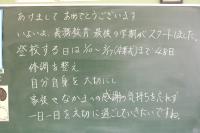 あけまして おめでとうございます
いよいよ、義務教育 最後の学期がスタートしました。
登校する日は1/10~3/17(卒業式)まで48日
体調を整え
自分自身を大切にし
家族やなかまへの感謝の気持ちを忘れず
一日一日を大切に過ごしていきたいですね。